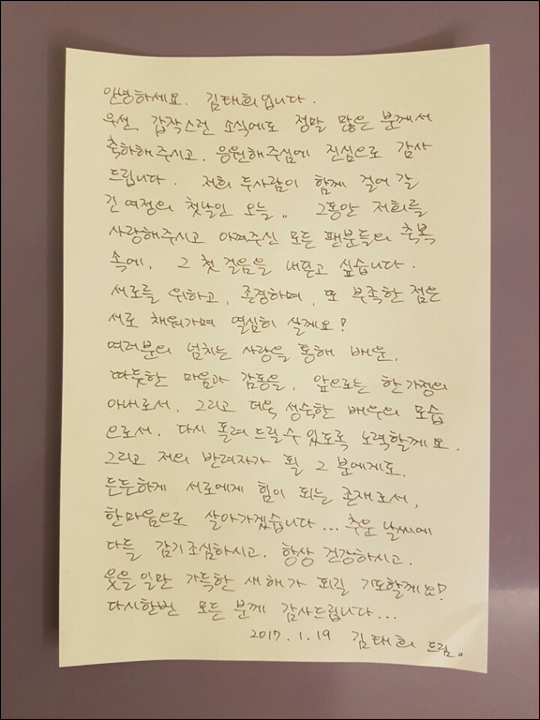 안녕하세요. 김태희입니다.
우선, 갑작스런 소식에도 정말 많은 분께서
축하해주시고, 응원해주심에 진심으로 감사
드립니다. 저희 두사람이 함께 걸어 갈
긴 여정의 첫날인 오늘,, 그동안 저희를
사랑해주시고 아껴주신 모든 팬분들의 축복
속에, 그 첫 걸음을 내딛고 싶습니다.
서로를 위하고, 존경하며, 또 부족한 점은
서로 채워가며 열심히 살게요!
여러분의 넘치는 사랑을 통해 배운,
따뜻한 마음과 감동을, 앞으로는 한 가정의
아내로서, 그리고 더욱 성숙한 배우의 모습
으로서, 다시 돌려 드릴 수 있도록 노력할게요.
그리고 저의 반려자가 될 그 분에게도,
든든하게 서로에게 힘이 되는 존재로서,
한마음으로 살아가겠습니다... 추운 날씨에
다들 감기조심하시고, 항상 건강하시고,
웃을 일만 가득한 새해가 되길 기도할게요!
다시한번 모든 분께 감사드립니다...
2017.1.19 김태희 드림.